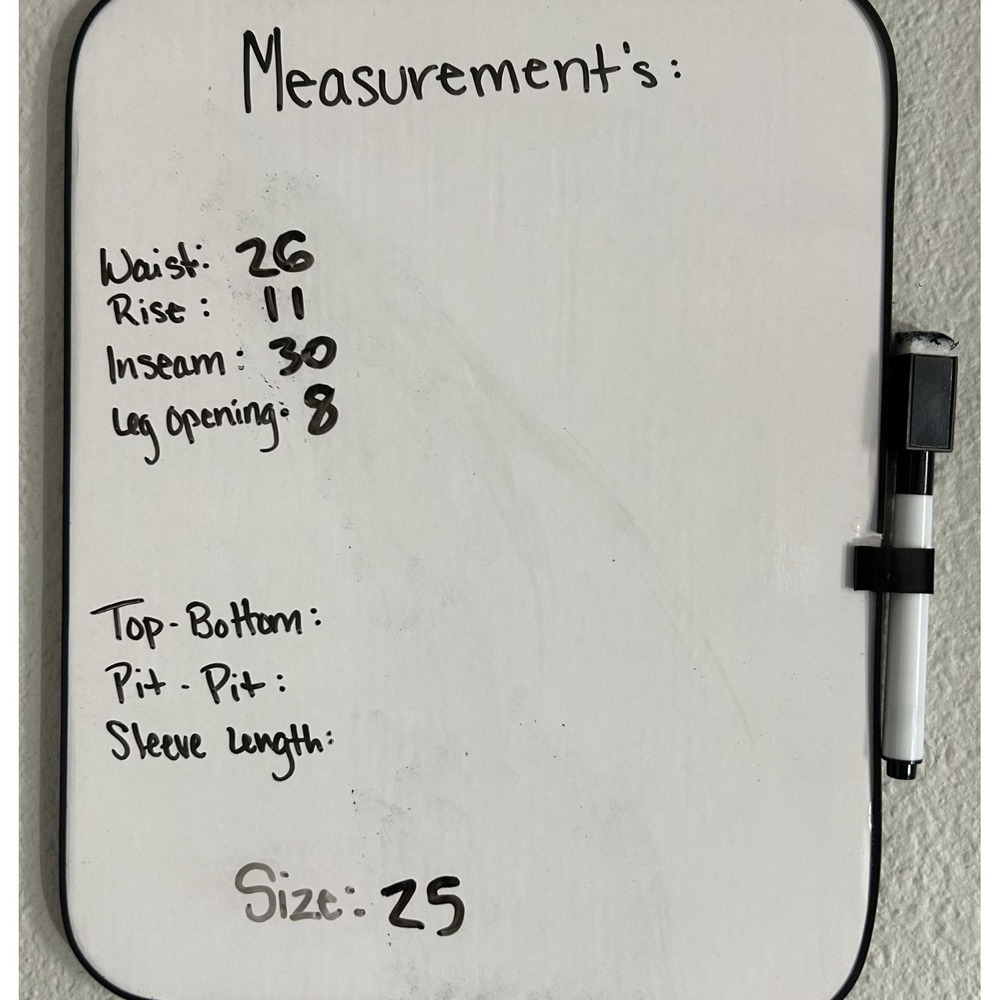 Measurement's:
Waist: 26
Rise: 11
Inseam: 30
Leg opening: 8
Top-Bottom:
Pit-Pit:
Sleeve Length:
Size: 25